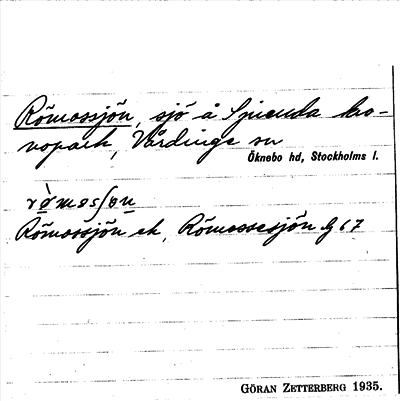 Römossjön, sjö å Sjuenda kro-
nopark, Vårdinge sn
Öknebo hd, Stockholms l.
Römossjön ek, Römossesjön Gg 67
GÖRAN ZETTERBERG 1935.